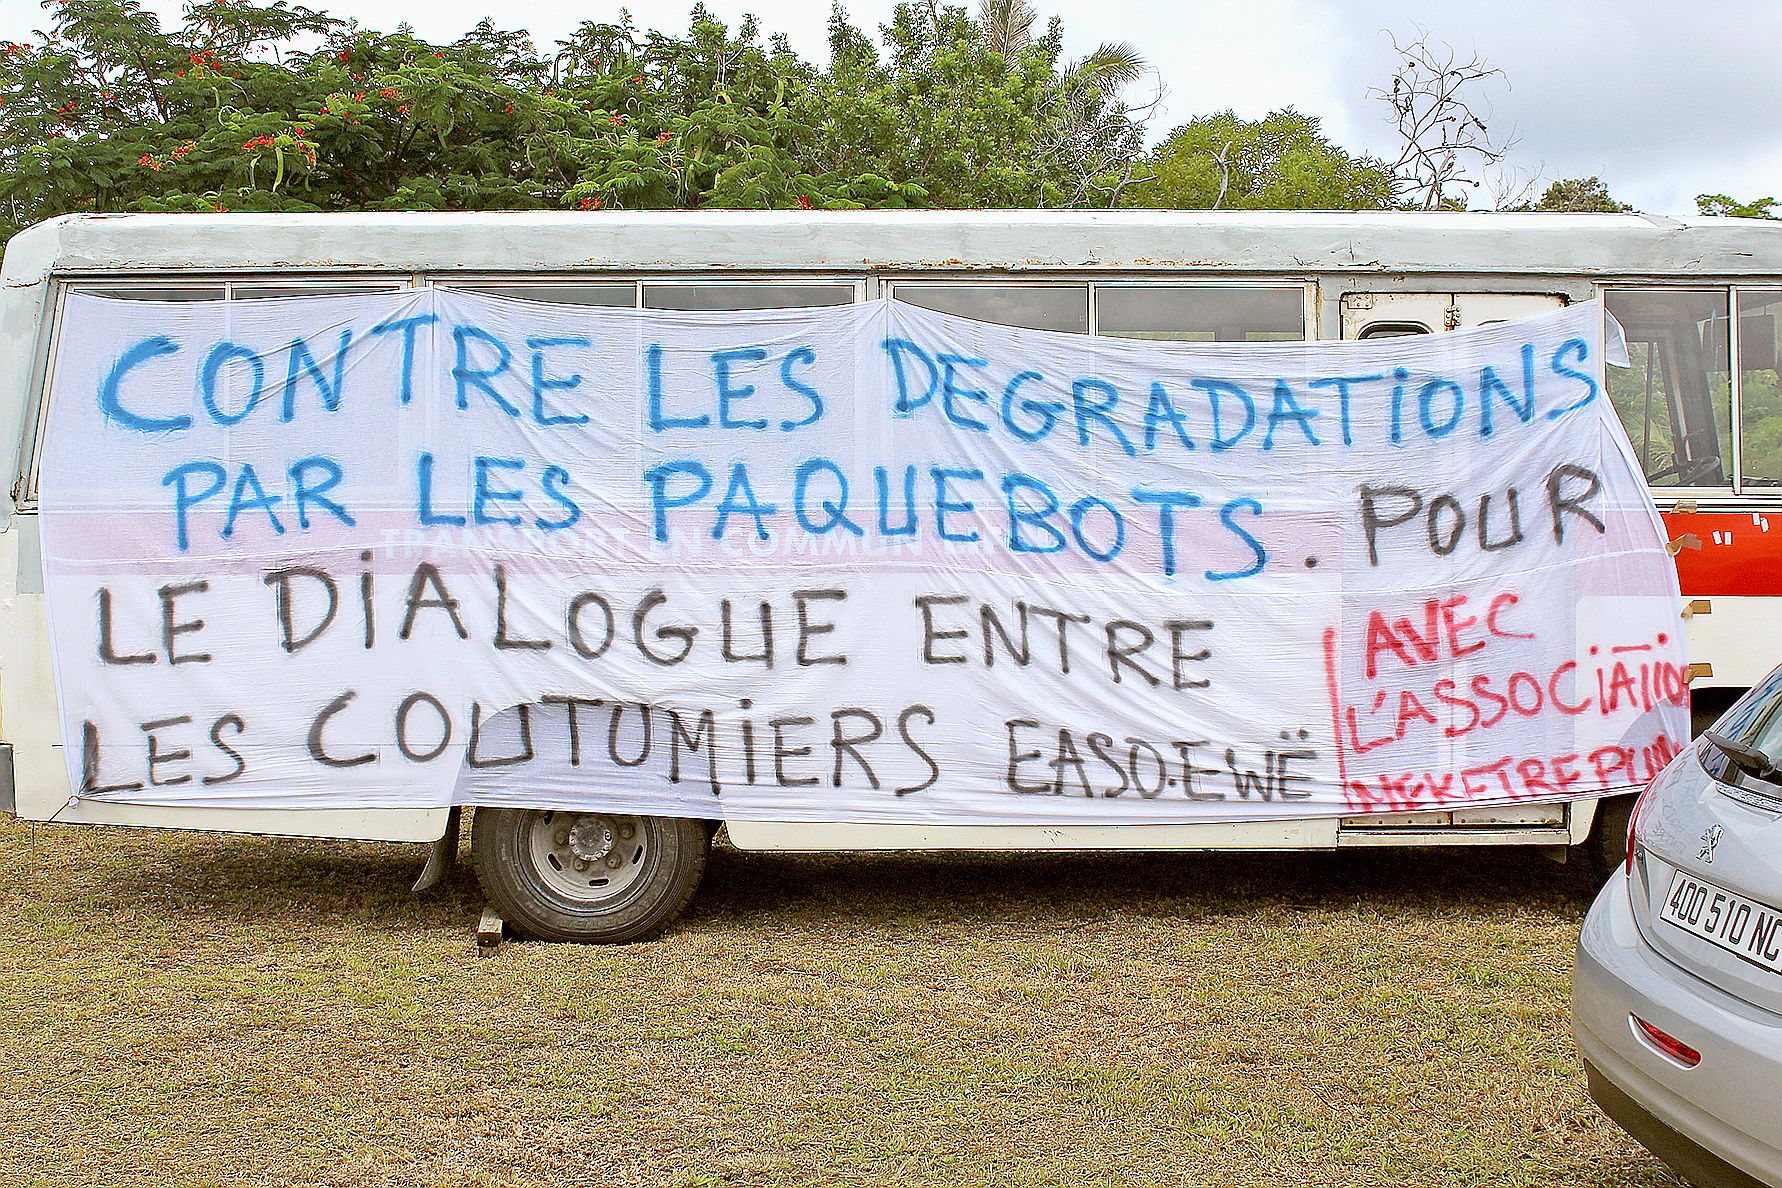 CONTRE LES DEGRADATIONS
PAR LES PAQUEBOTS. POUR
LE DIALOGUE ENTRE
LES COUTUMIERS EASO-EWË
AVEC
L'ASSOCIATION
TRANSPORT EN COMMUN
400 510 NC